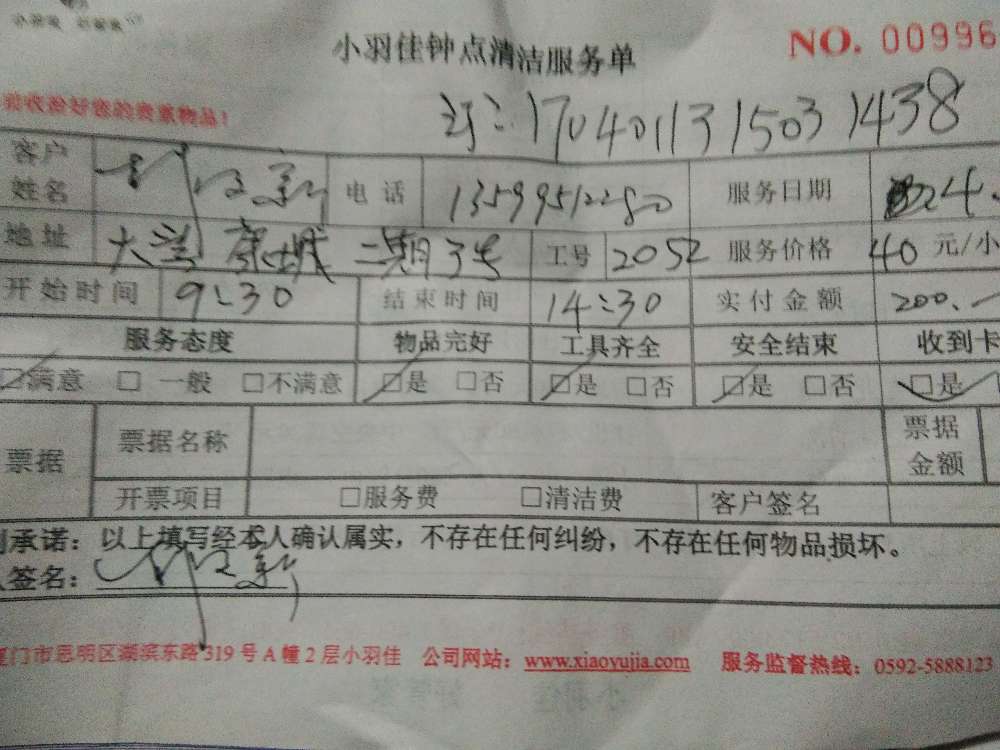 小羽佳钟点清洁服务单
NO. 00996
验收好您的贵重物品！
订：170401131503 1438
客户姓名 电话 13599512280 服务日期 24
地址 二期3号 工号 2052 服务价格 40 元/小
开始时间 9:30 结束时间 14:30 实付金额 200.
服务态度 物品完好 工具齐全 安全结束 收到卡
☑满意 □一般 □不满意 ☑是 □否 ☑是 □否 ☑是 □否 ☑是
票据 票据名称 票据金额
开票项目 □服务费 □清洁费 客户签名
承诺：以上填写经本人确认属实，不存在任何纠纷，不存在任何物品损坏。
签名：
厦门市思明区湖滨东路319号A幢2层小羽佳 公司网站：www.xiaoyujia.com 服务监督热线：0592-5888123